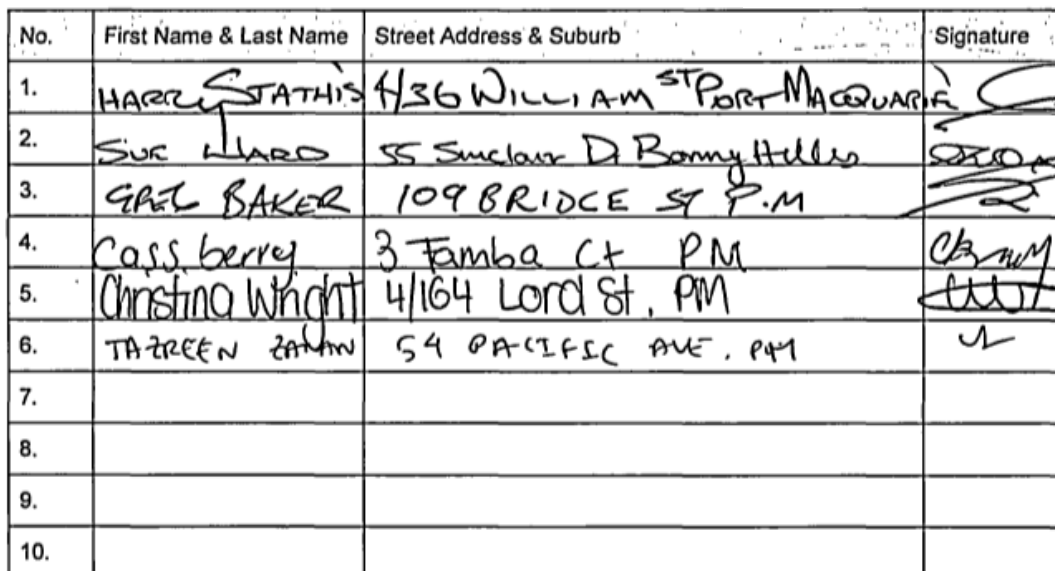 No. First Name & Last Name Street Address & Suburb Signature
1. HARRY STATHIS 4/36 WILLIAM ST PORT MACQUARIE
2. SUE WARD 55 Sinclair Dr Bonny Hills
3. GREG BAKER 109 BRIDGE ST P.M
4. Cass berry 3 Tamba Ct PM
5. Christina Wright 4/164 Lord St, PM
6. TAZREEN ZAMAN 54 PACIFIC AVE, PM
7.
8.
9.
10.